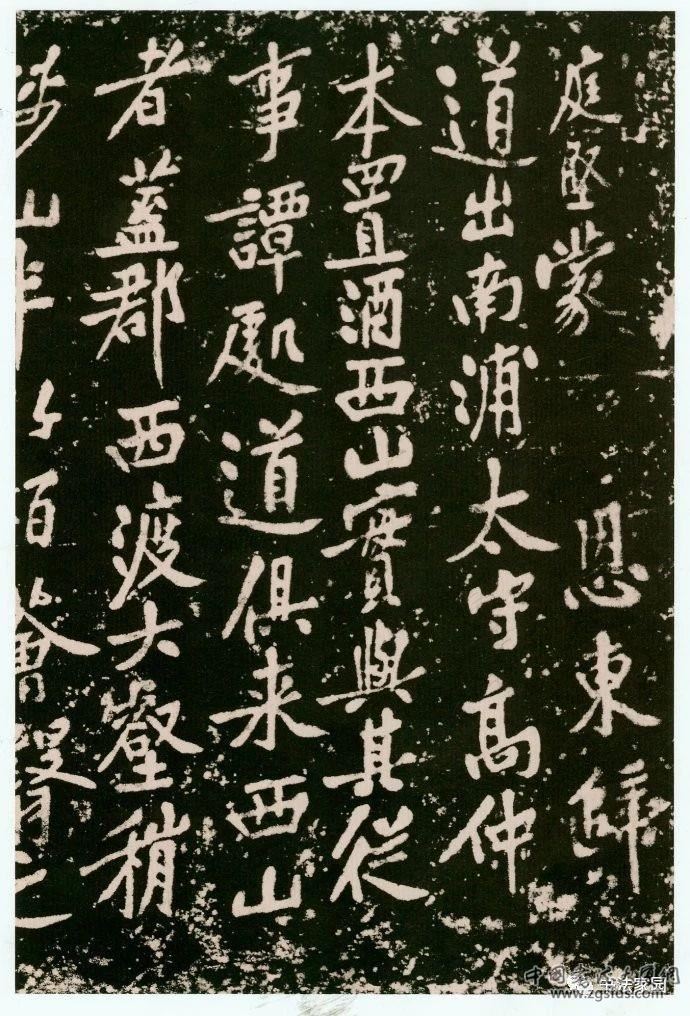 庭堅蒙恩東歸
道出南浦太守高仲
本置酒西山實與其從
事譚處道俱来西山
者蓋郡西渡大壑稍
陟山半竹栢薈翳之
书法家园
www.zgsfds.com